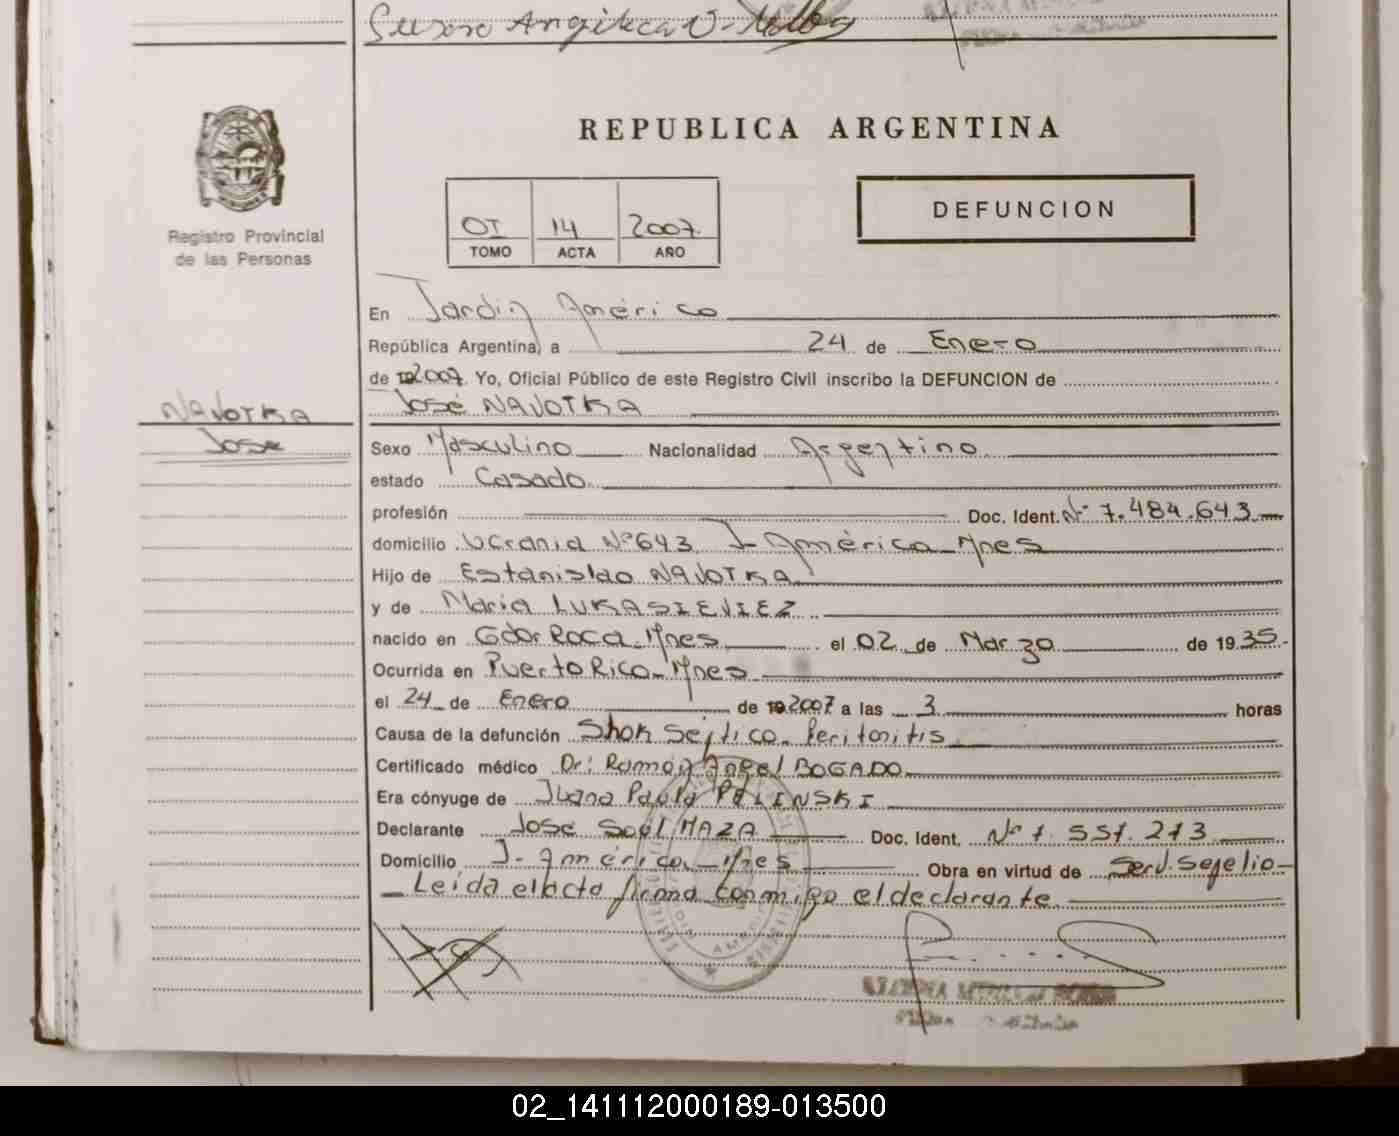 REPUBLICA ARGENTINA
Registro Provincial
de las Personas
01 14 2007.
TOMO ACTA AÑO
DEFUNCION
En Jardín América
República Argentina, a 24 de Enero
de 2007. Yo, Oficial Público de este Registro Civil inscribo la DEFUNCION de
José NAVOTKA
NAVOTKA
Jose
Sexo Masculino Nacionalidad Argentino
estado Casado.
profesión Doc. Ident. Nº 7.484.643
domicilio Ucrania Nº643 J- América-Mnes
Hijo de Estanislao NAVOTKA
y de Maria LUKASIEVIEZ
nacido en Gdor Roca-Mnes el 02 de Marzo de 1935.
Ocurrida en Puerto Rico-Mnes
el 24 de Enero de 2007 a las 3 horas
Causa de la defunción Shok Séptico. Peritonitis
Certificado médico Dr: Ramón Angel BOGADO
Era cónyuge de Juana Paula PELINSKI
Declarante José Saúl MAZA Doc. Ident. Nº 7.551.273
Domicilio J- América-Mnes Obra en virtud de Serv. Sepelio-
Leída el acta firma conmigo el declarante
02_141112000189-013500